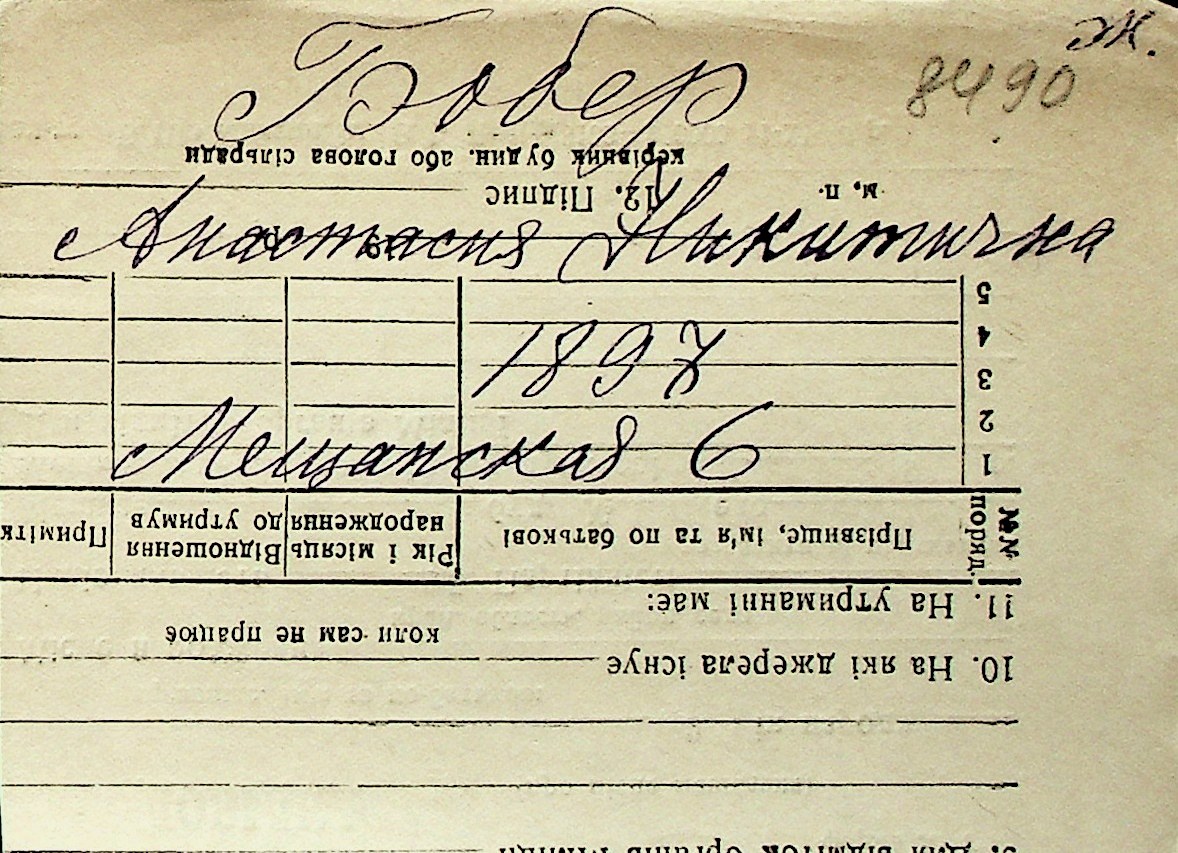 ж.
8490
Бобер
Анастасия Никитична
1897
Мещанская 6
10. На які джерела існує
коли сам не працює
11. На утриманні має:
№№ поряд.
Прізвище, ім'я та по батькові
Рік і місяць народження
Відношення до утримув
Примітк
1
2
3
4
5
м. п.
12. Підпис
керівник будин. або голова сільради